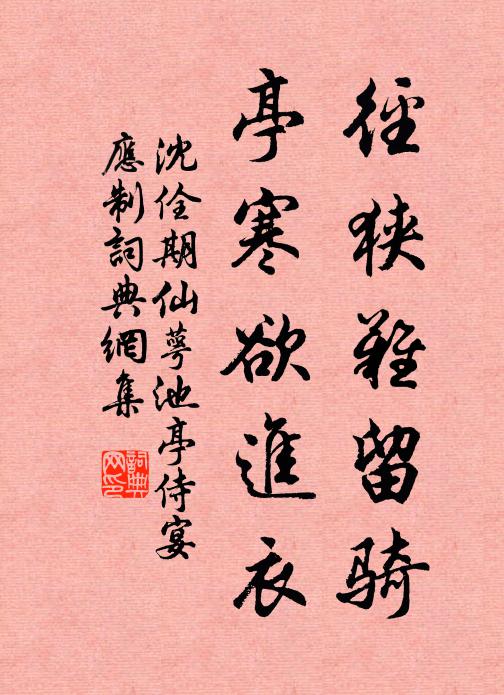 徑狹難留騎
亭寒欲進衣
沈佺期仙萼池亭侍宴
應制詞典網集
詞典
网印